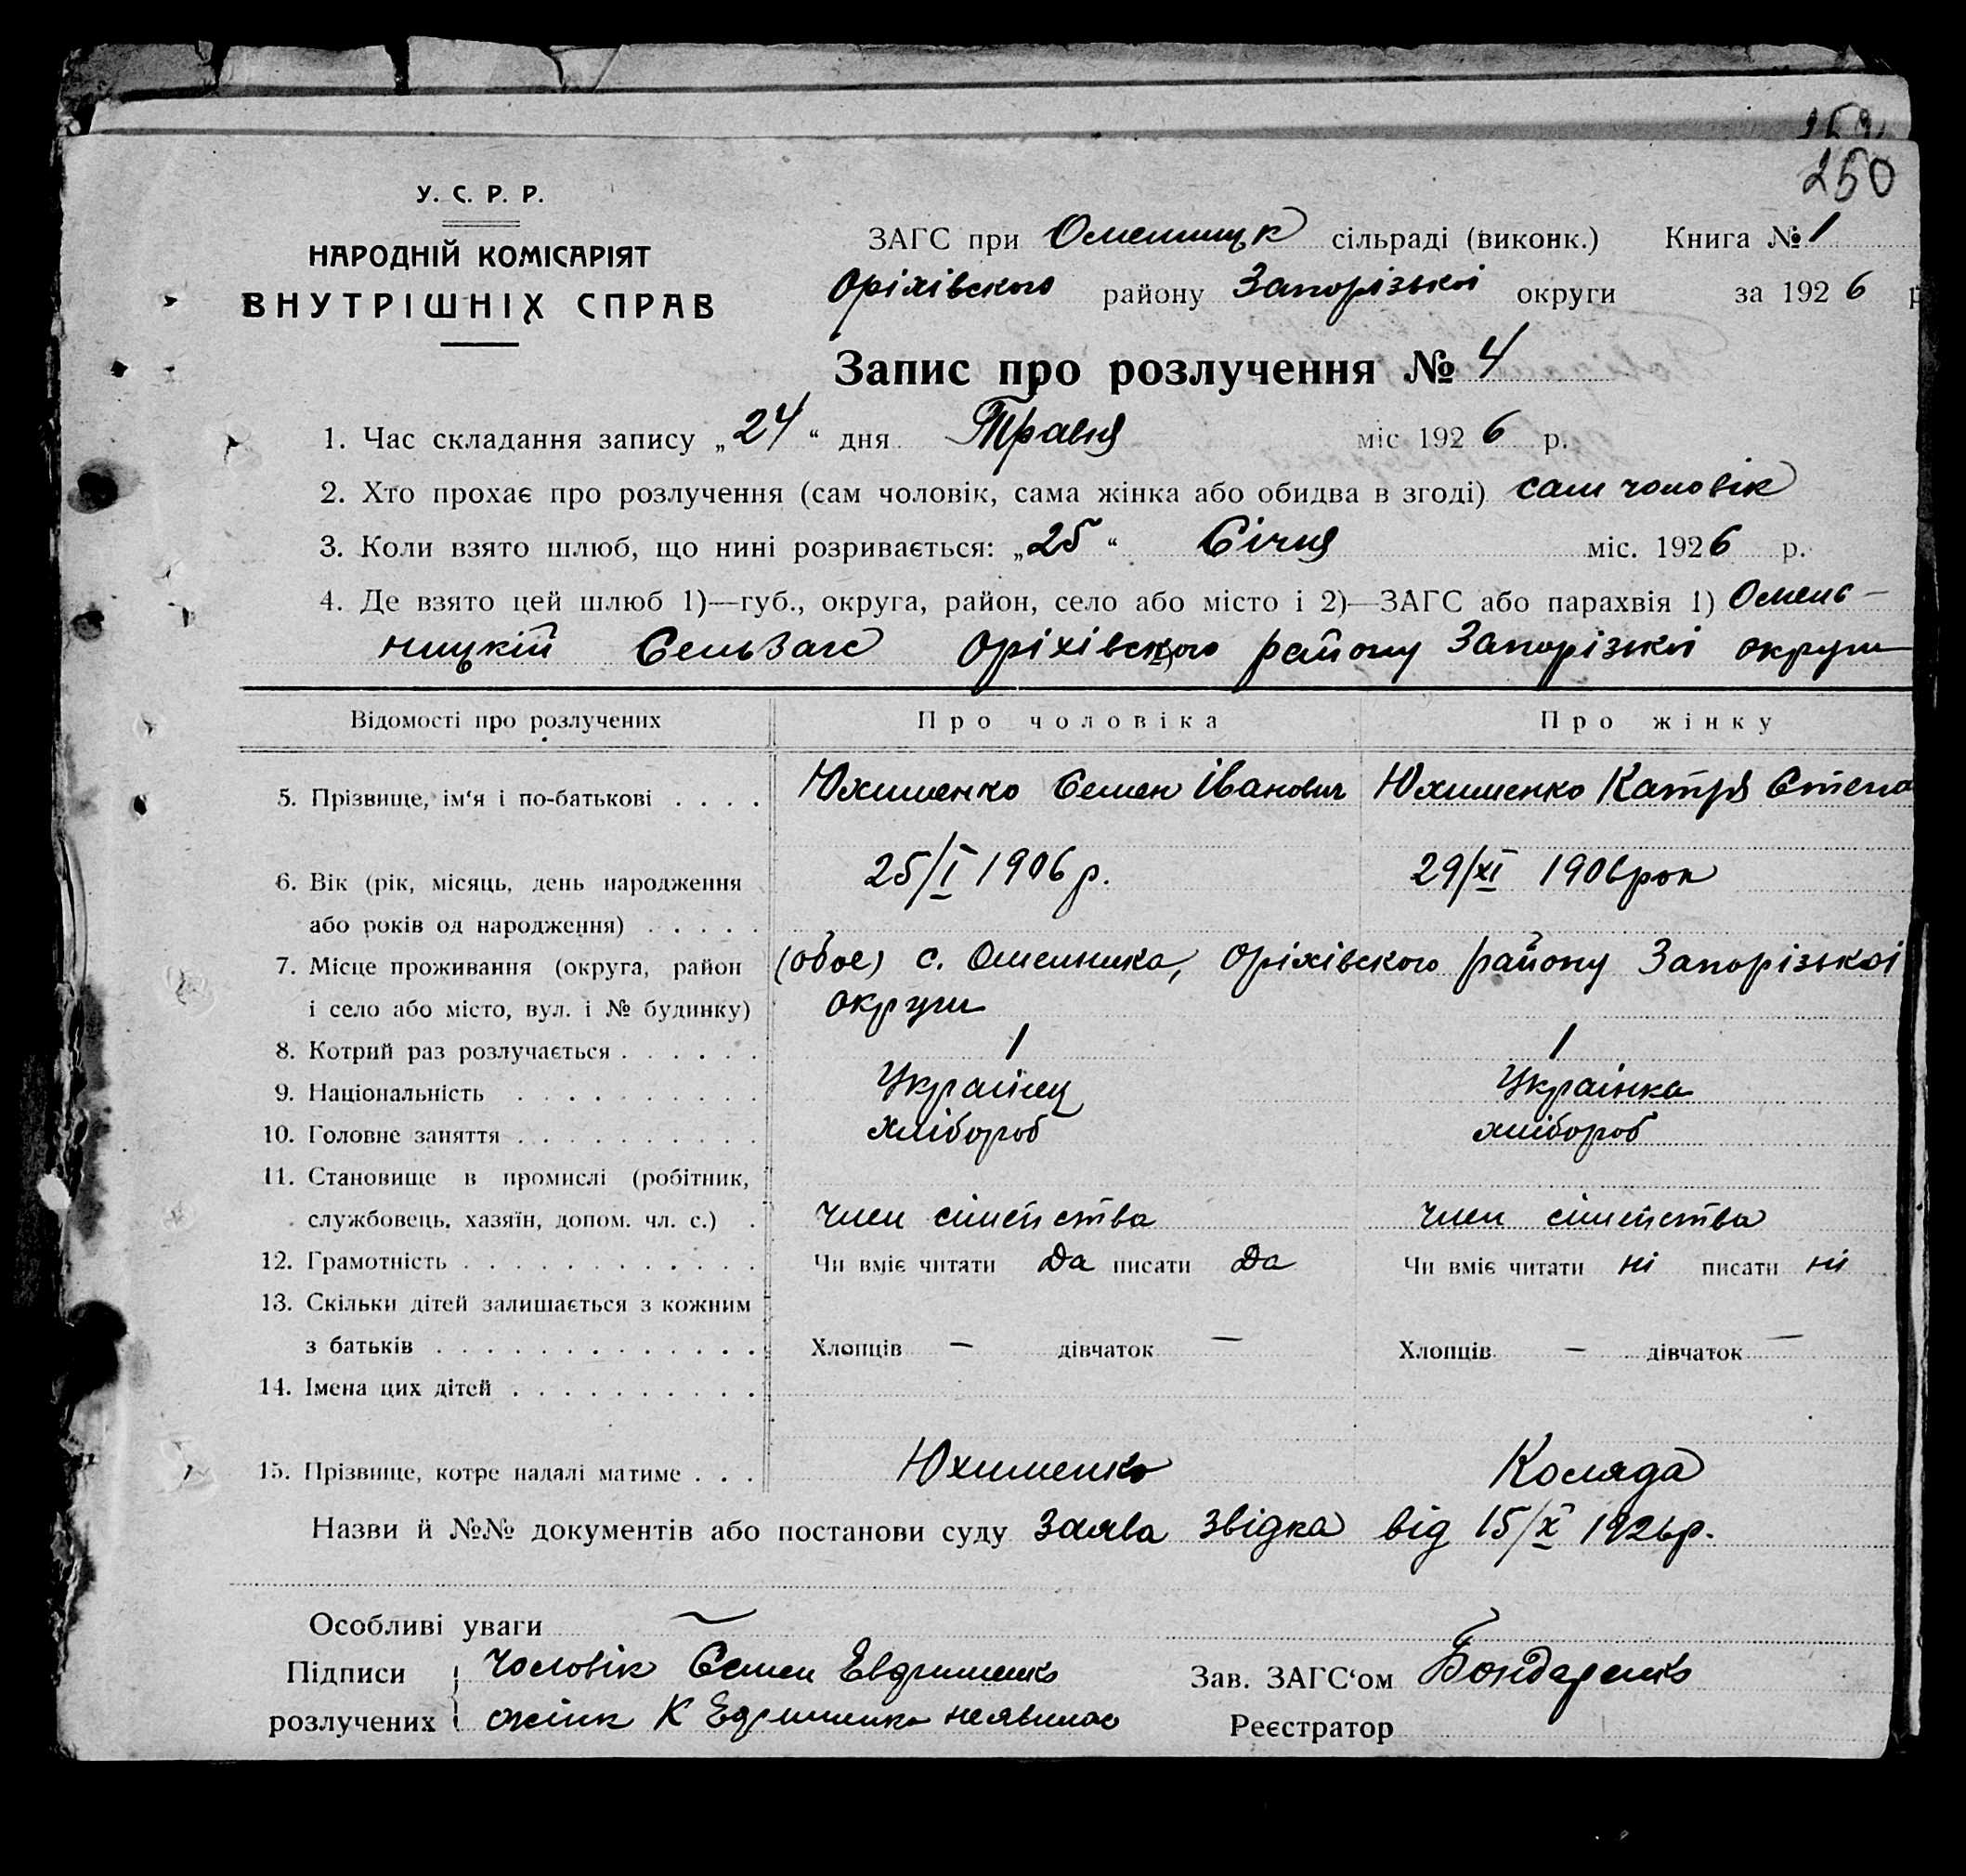 250
У. С. Р. Р.
НАРОДНІЙ КОМІСАРІЯТ
ВНУТРІШНІХ СПРАВ
ЗАГС при Оменницк сільраді (виконк.) Книга № 1
Оріхівского району Запорізькоі округи за 1926 р
Запис про розлучення № 4
1. Час складання запису „24“ дня Травня міс 1926 р.
2. Хто прохає про розлучення (сам чоловік, сама жінка або обидва в згоді) сам чоловік
3. Коли взято шлюб, що нині розривається: „25“ Січня міс. 1926 р.
4. Де взято цей шлюб 1)—губ., округа, район, село або місто і 2)—ЗАГС або парахвія 1) Омель-
ницкій СельЗагс Оріхівского району Запорізькоі округи
Відомості про розлучених Про чоловіка Про жінку
5. Прізвище, ім‘я і по-батькові . . . . Юхименко Семен Іванович Юхименко Катря Степа
6. Вік (рік, місяць, день народження 25/I 1906 р. 29/XI 1906 рок
або років од народження) . . . . .
7. Місце проживання (округа, район (обоє) с. Омельника, Оріхівского району Запорізькоі
і село або місто, вул. і № будинку) округи
8. Котрий раз розлучається . . . . . . 1 1
9. Національність . . . . . . . . . . Украінец Украінка
10. Головне заняття . . . . . . . . . . хлібороб хлібороб
11. Становище в промислі (робітник,
службовець, хазяїн, допом. чл. с.) . член сімейства член сімейства
12. Грамотність . . . . . . . . . . . . Чи вміє читати Да писати Да Чи вміє читати ні писати ні
13. Скільки дітей залишається з кожним
з батьків . . . . . . . . . . . . . Хлопців — дівчаток — Хлопців — дівчаток —
14. Імена цих дітей . . . . . . . . . .
15. Прізвище, котре надалі матиме . . . Юхименко Коляда
Назви й №№ документів або постанови суду Заява Звідка від 15/X 1926 р.
Особливі уваги —
Підписи чоловік Семен Евфименко Зав. ЗАГС‘ом Бондаренко
розлучених жінк К неявилас Реєстратор